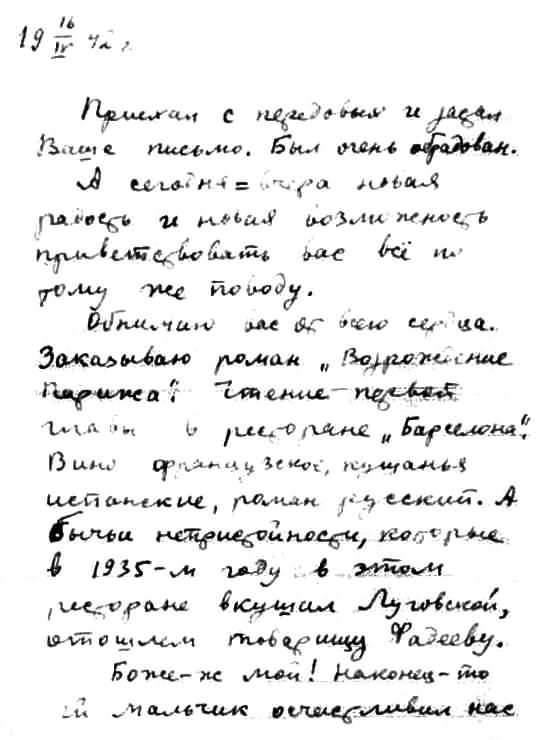 19 16/IV 42 г.
Приехал с передовых и застал
Ваше письмо. Был очень обрадован.
А сегодня = вчера новая
радость и новая возможность
приветствовать вас всё по
тому же поводу.
Обнимаю вас от всего сердца.
Заказываю роман „Возрождение
Парижа“. Чтение первой
главы в ресторане „Барселона“.
Вино французское, кушанья
испанские, роман русский. А
бычьи непристойности, которые
в 1935-м году в этом
ресторане вкушал Луговской,
отошлем товарищу Фадееву.
Боже-ж мой! Наконец-то
мальчик осчастливил нас